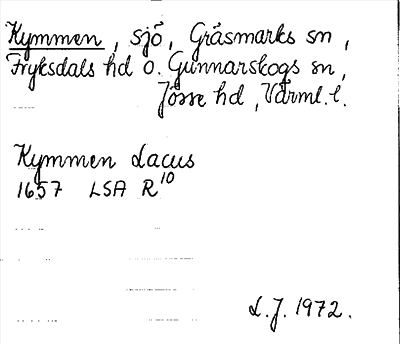 Kymmen, sjö, Gräsmarks sn,
Fryksdals hd o. Gunnarskogs sn,
Jösse hd, Värml. l.
Kymmen Lacus
1657 LSA R10
L.J. 1972.